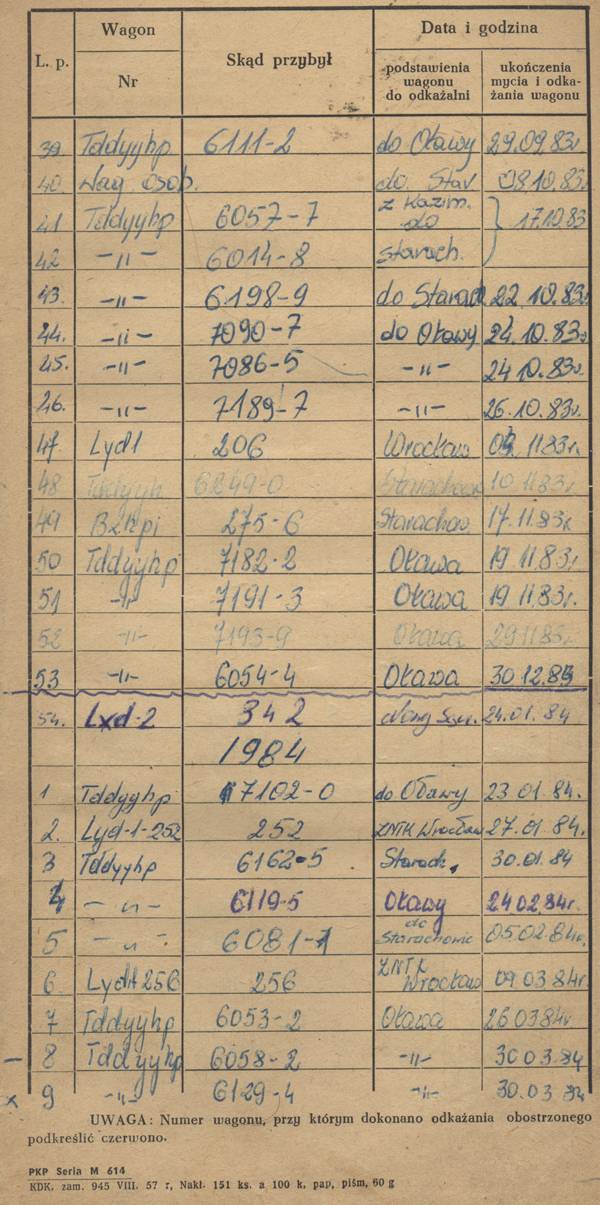 L. p. Wagon Nr Skąd przybył Data i godzina
podstawienia wagonu do odkażalni ukończenia mycia i odka-żania wagonu
39 Tddyyhp 6111-2 do Oławy 29.09.83r.
40. Wag. osob. do Star 08.10.83r
41 Tddyyhp 6057-7 z Kazim. do 17.10.83
42 -"- 6014-8 Starach.
43. -"- 6198-9 do Starach 22.10.83r.
44. -"- 7090-7 do Oławy 24.10.83r.
45. -"- 7086-5 -"- 24 10.83r.
46. -"- 7189-7 -"- 26.10.83r.
47 Lyd1 206 Wrocław 11 83r.
48 Tddyyh 6249-0 Starachow 10 11 83r
49 275-6 Starachow. 17.11.83r
50 Tddyyhp 7182-2 Oława 19 11.83r
51 -"- 7191-3 Oława 19 11.83r.
52 -"- 7193-9 Oława 29 11 83r
53 -"- 6054-4 Oława 30 12.83
54. Lxd-2 342 Nowy 24.01.84
1984
1 Tddyyhp 7102-0 do Oławy 23 01 84.
2. Lyd-1-252 252 ZNTK Wrocław 27.01 84.
3 Tddyyhp 6162-5 Starach. 30.01.84
4 -"- 6119-5 Oławy 24 02 84r.
5 -"- 6081-1 do Starachowic 05.02 84r.
6 Lyd1 256 256 ZNTK Wrocław 09 03 84r
7 Tddyyhp 6053-2 Oława 26 03 84r
– 8 Tddyyhp 6058-2 -"- 30 03.84
x 9 -"- 6129-4 -"- 30.03 84
UWAGA: Numer wagonu, przy którym dokonano odkażania obostrzonego
podkreślić czerwono.
PKP Seria M 614
KDK. zam. 945 VIII. 57 r, Nakł. 151 ks. a 100 k, pap, piśm, 60 g